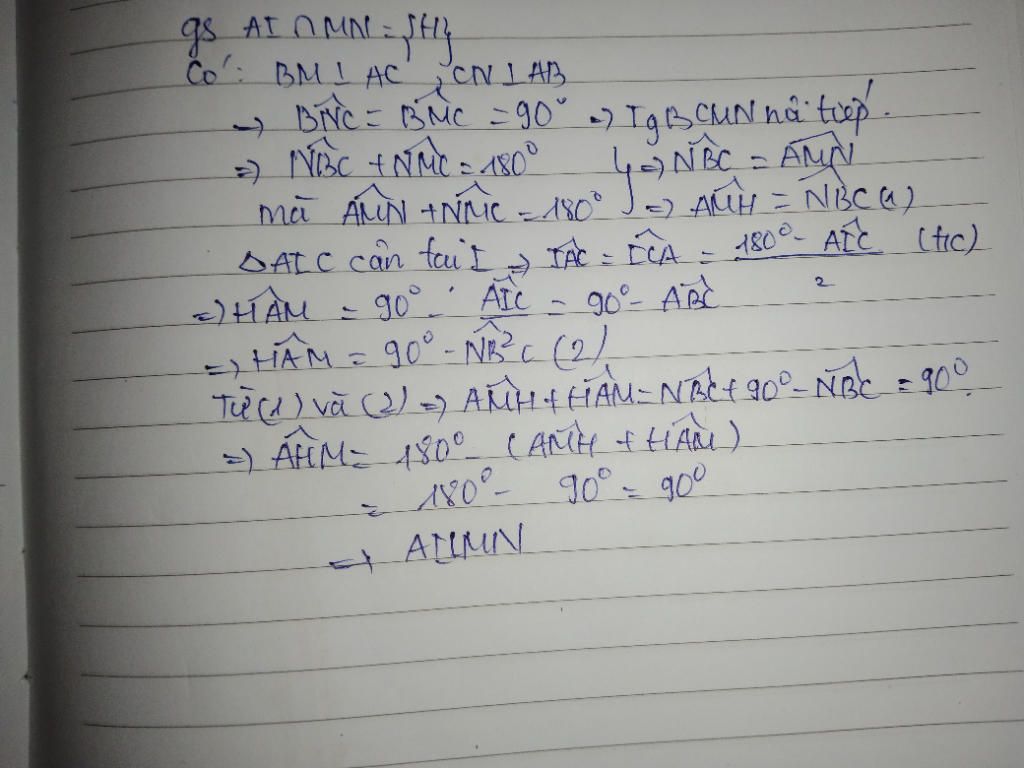 gs AI ∩ MN = {H}
Có: BM ⊥ AC, CN ⊥ AB
→ BNC = BMC = 90° → Tg BCMN nội tiếp.
⇒ NBC + NMC = 180° ⇒ NBC = AMN
mà AMN + NMC = 180° ⇒ AMH = NBC (1)
Δ AIC cân tại I ⇒ IAC = ICA = 180° - AIC / 2 (t/c)
⇒ HAM = 90° - AIC / 2 = 90° - ABC
⇒ HAM = 90° - NBC (2)
Từ (1) và (2) ⇒ AMH + HAM = NBC + 90° - NBC = 90°
⇒ AHM = 180° - (AMH + HAM)
= 180° - 90° = 90°
→ AI ⊥ MN